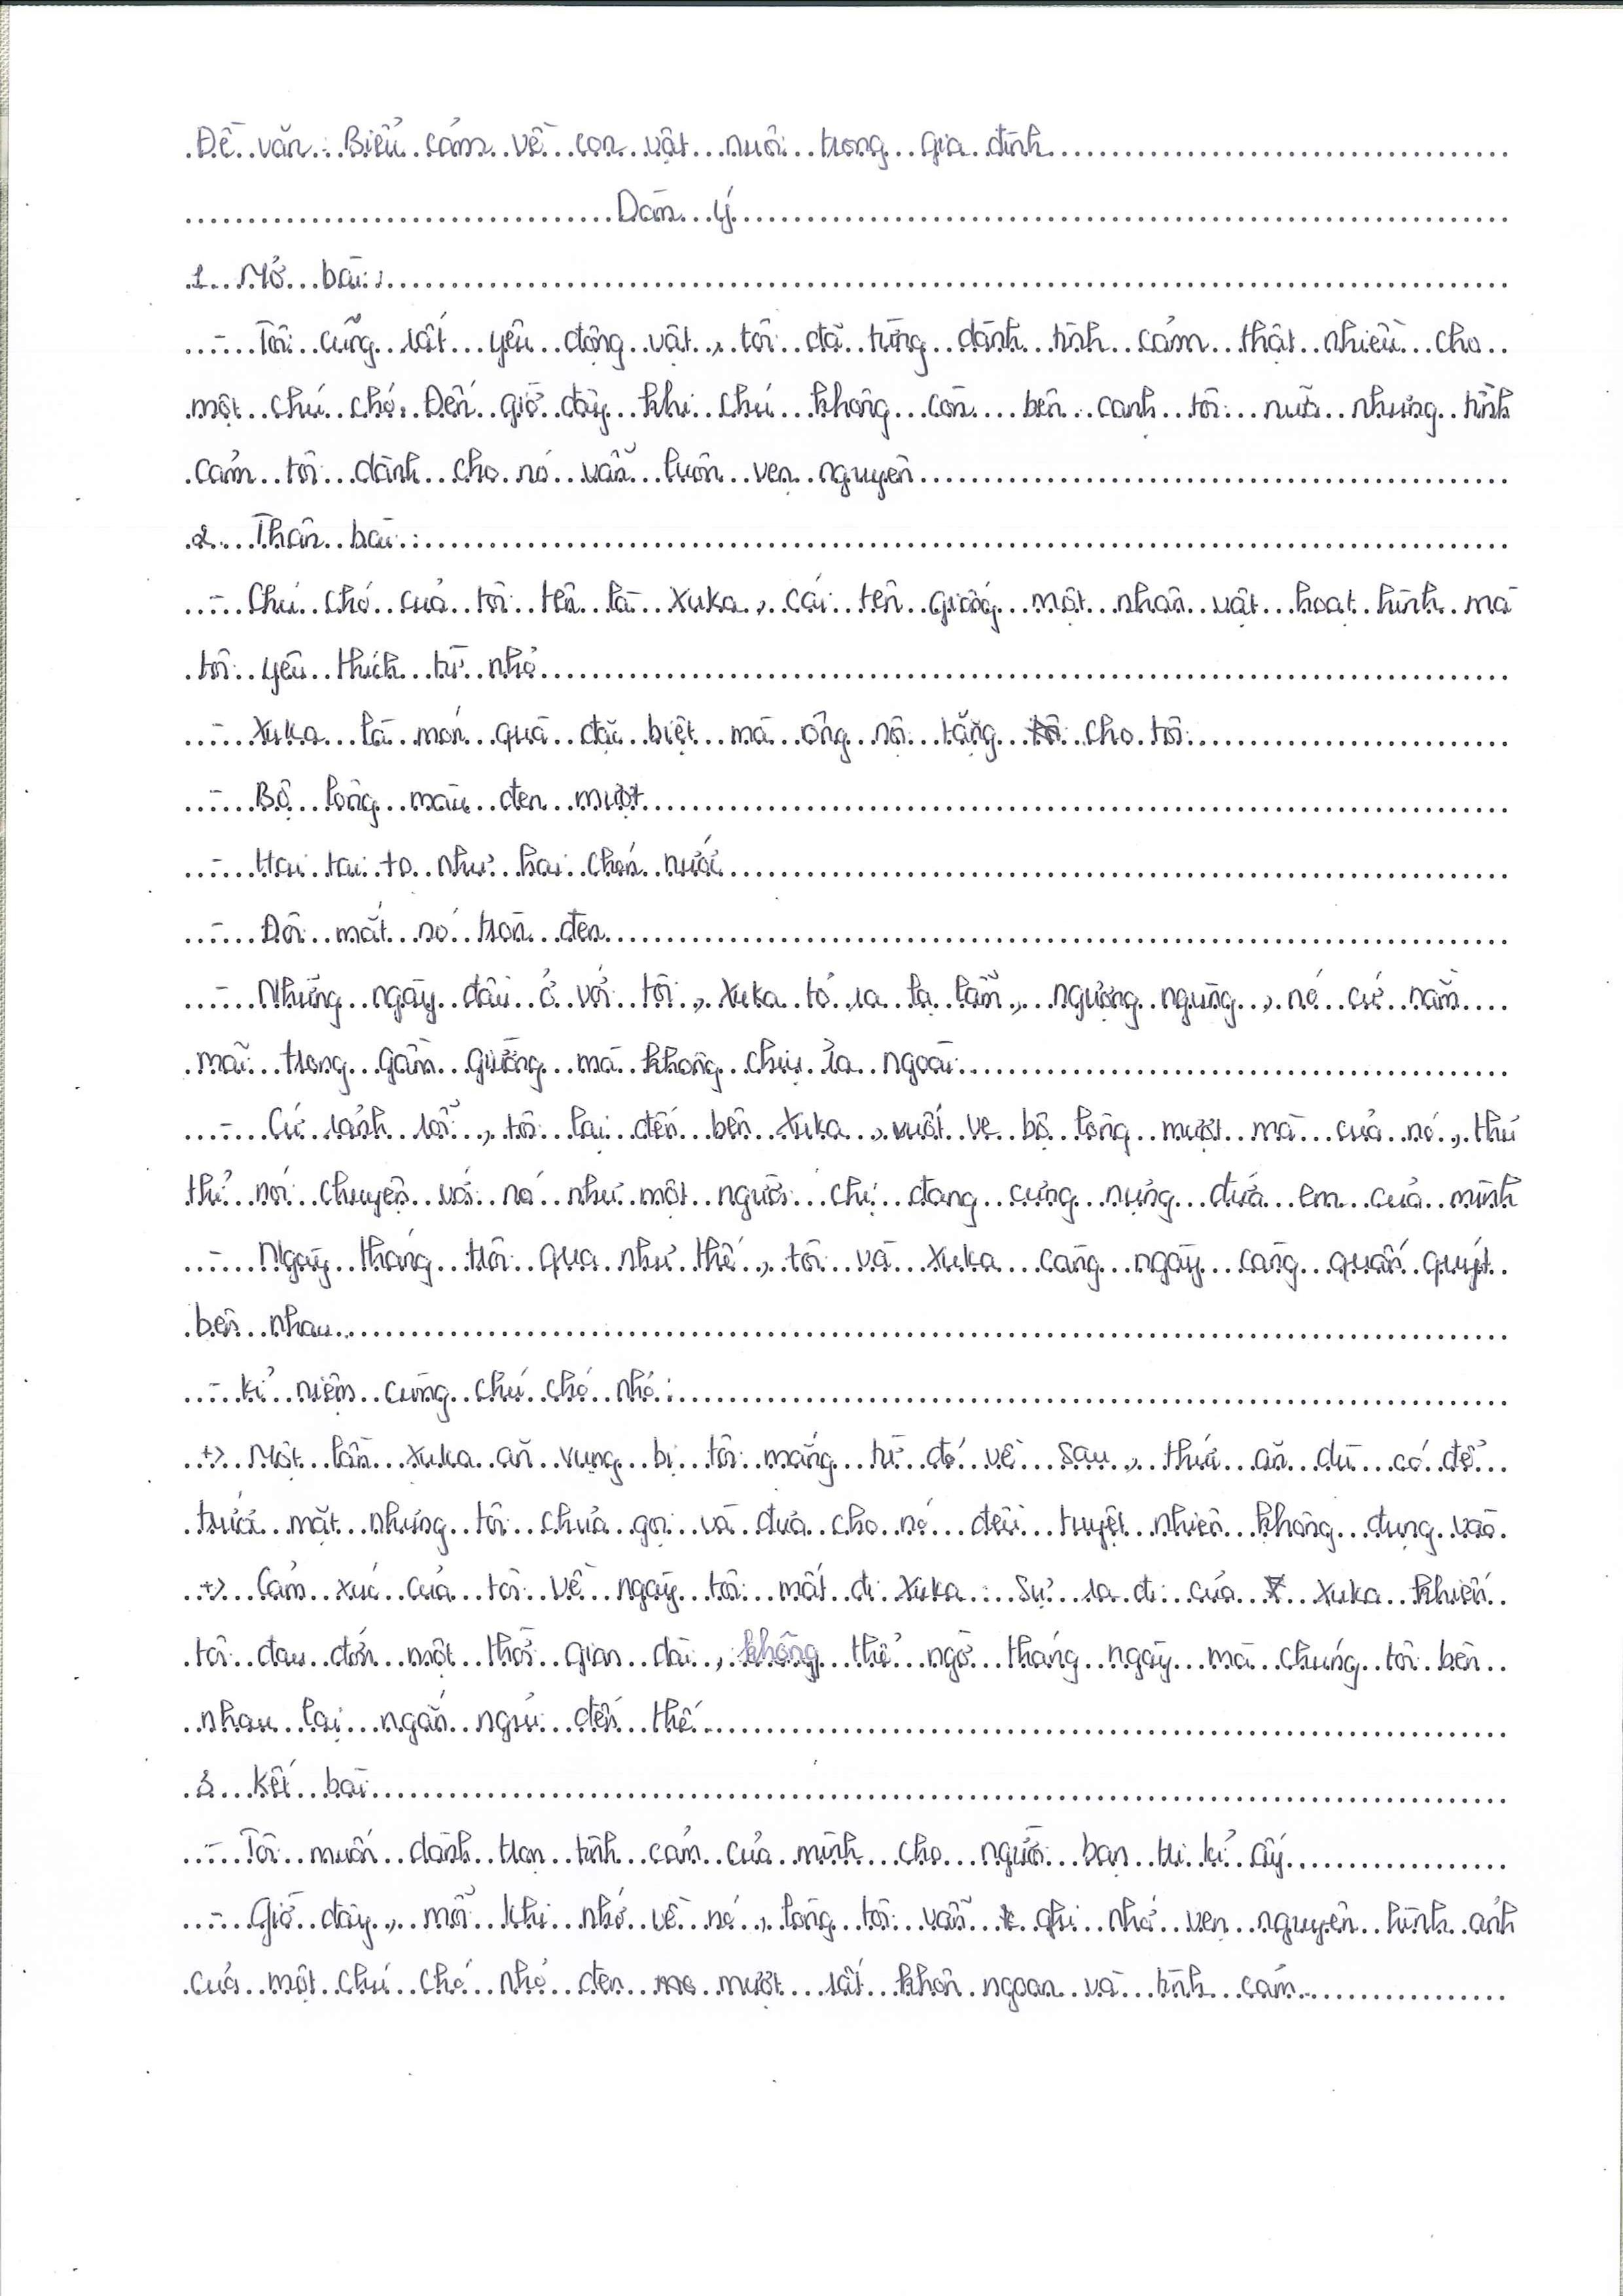 Đề văn: Biểu cảm về con vật nuôi trong gia đình
Dàn ý
1. Mở bài:
- Tôi cũng rất yêu động vật, tôi đã từng dành tình cảm thật nhiều cho
một chú chó. Đến giờ đây khi chú không còn bên cạnh tôi nữa nhưng tình
cảm tôi dành cho nó vẫn luôn vẹn nguyên
2. Thân bài:
- Chú chó của tôi tên là Xuka, cái tên giống một nhân vật hoạt hình mà
tôi yêu thích từ nhỏ
- Xuka là món quà đặc biệt mà ông nội tặng cho tôi
- Bộ lông màu đen mượt
- Hai tai to như hai chén nước
- Đôi mắt nó tròn đen
- Những ngày đầu ở với tôi, Xuka tỏ ra lạ lẫm, ngượng ngùng, nó cứ nằm
mãi trong gầm giường mà không chịu ra ngoài
- Cứ rảnh rỗi, tôi lại đến bên Xuka, vuốt ve bộ lông mượt mà của nó, thủ
thỉ nói chuyện với nó như một người chị đang cưng nựng đứa em của mình
- Ngày tháng trôi qua như thế, tôi và Xuka càng ngày càng quấn quýt
bên nhau.
- Kỉ niệm cùng chú chó nhỏ:
+> Một lần Xuka ăn vụng bị tôi mắng từ đó về sau, thức ăn dù có để
trước mặt nhưng tôi chưa gọi và đưa cho nó đều tuyệt nhiên không đụng vào.
+> Cảm xúc của tôi về ngày tôi mất đi Xuka: Sự ra đi của Xuka khiến
tôi đau đớn một thời gian dài, không thể ngờ tháng ngày mà chúng tôi bên
nhau lại ngắn ngủi đến thế.
3. Kết bài
- Tôi muốn dành trọn tình cảm của mình cho người bạn tri kỉ ấy
- Giờ đây, mỗi khi nhớ về nó, lòng tôi vẫn ghi nhớ vẹn nguyên hình ảnh
của một chú chó nhỏ đen mượt rất khôn ngoan và tình cảm.